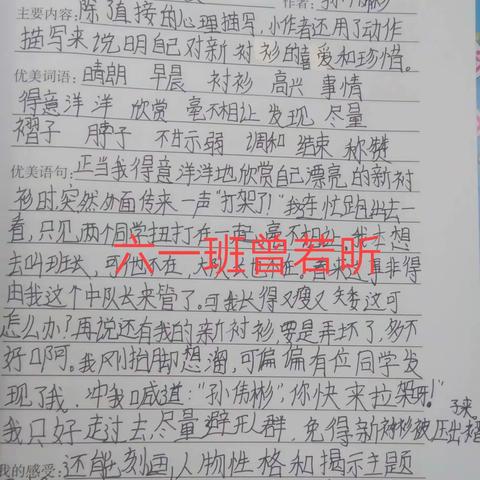 作者: 孙伟彬
主要内容:除了直接的心理描写,小作者还用了动作
描写来说明自己对新衬衫的喜爱和珍惜。
优美词语: 晴朗 早晨 衬衫 高兴 事情
得意洋洋 欣赏 毫不相让 发现 尽量
褶子 脖子 不甘示弱 调和 结束 称赞
优美语句:正当我得意洋洋地欣赏自己漂亮的新衬
衫时,突然外面传来一声“打架了!”我连忙跑出去一
看,只见两个同学扭打在一起,毫不相让,我本想
六一班曾若昕
去叫班长,可他不在,非得
由我这个中队长来管了。可我长得又瘦又矮这可
怎么办?再说还有我的新衬衫,要是弄坏了,多不
好口阿。我刚抬脚想溜,可偏偏有位同学发
现了我,冲我喊道:“孙伟彬”,你快来拉架呀!”
我只好走过去,尽量避开人群,免得新衬衫被压出褶
子来。
我的感受:还能刻画人物性格和揭示主题